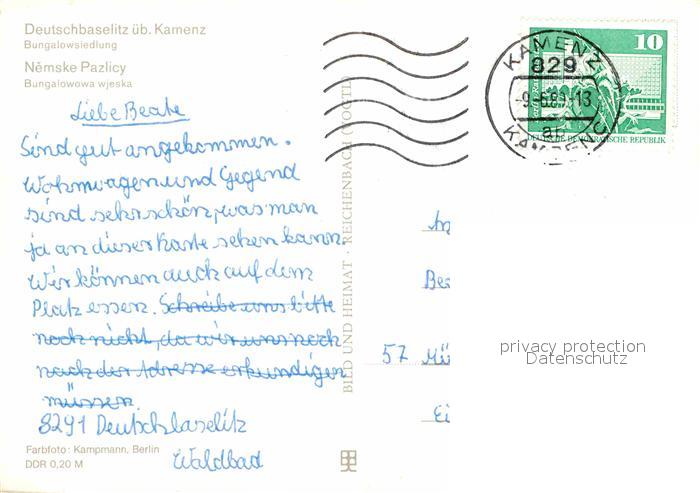 Deutschbaselitz üb. Kamenz
Bungalowsiedlung
Němske Pazlicy
Bungalowowa wjeska
Liebe Beate
Sind gut angekommen.
Wohnwagen und Gegend
sind sehr schön, was man
ja an dieser Karte sehen kann.
Wir können auch auf dem
Platz essen. Schreibe uns bitte
noch nicht, da wir uns noch
nach der Adresse erkundigen
müssen.
8291 Deutschbaselitz
Waldbad
Farbfoto: Kampmann, Berlin
DDR 0,20 M
BILD UND HEIMAT · REICHENBACH (VOGTL)
KAMENZ
829
KAMJENC
10
DEUTSCHE DEMOKRATISCHE REPUBLIK
An
Bea
57 Mü
Ei
privacy protection
Datenschutz